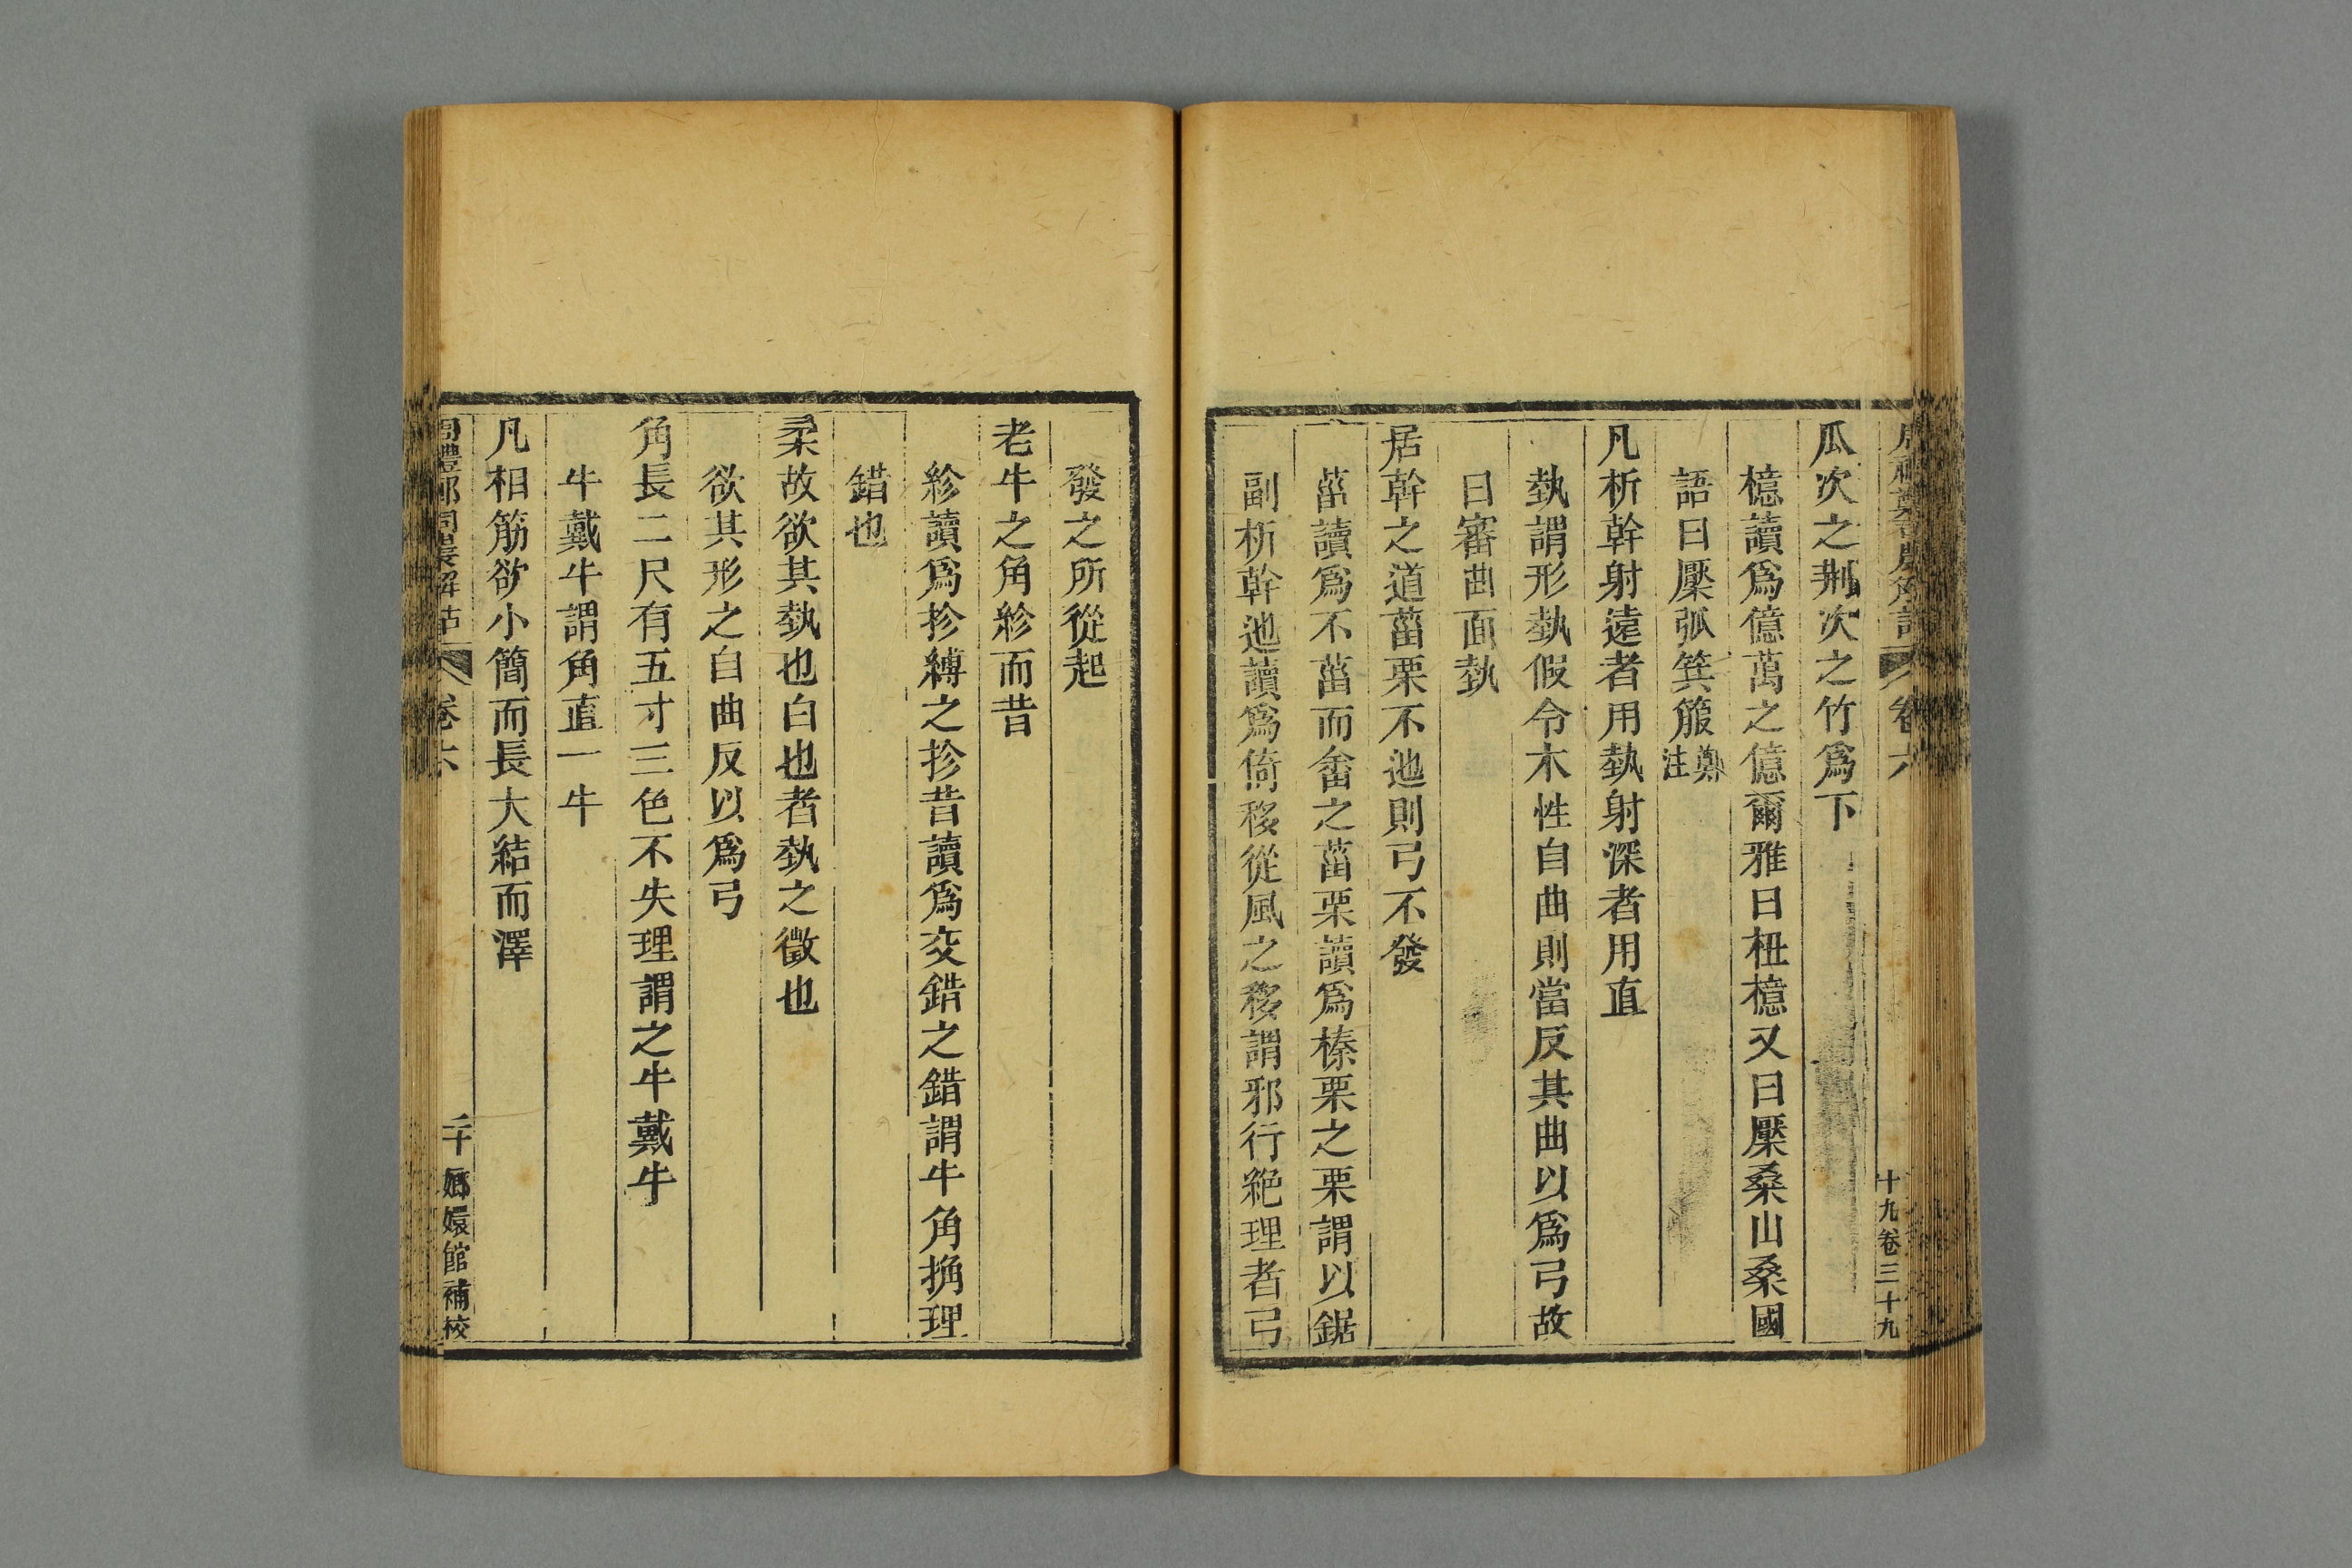 瓜次之荆次之竹爲下
檍讀爲億萬之億爾雅曰杻檍又曰檿桑山桑國
語曰檿弧箕箙鄭注
凡析幹射遠者用埶射深者用直
埶謂形埶假令木性自曲則當反其曲以爲弓故
曰審曲面埶
居幹之道菑栗不迆則弓不發
菑讀爲不菑而畬之菑栗讀爲榛栗之栗謂以鋸
副析幹迆讀爲倚移從風之移謂邪行絶理者弓
卷六
十九卷三十九
發之所從起
老牛之角紾而昔
紾讀爲抮縛之抮昔讀爲交錯之錯謂牛角捔理
錯也
柔故欲其埶也白也者埶之徵也
欲其形之自曲反以爲弓
角長二尺有五寸三色不失理謂之牛戴牛
牛戴牛謂角直一牛
凡相筋欲小簡而長大結而澤
卷六
二十 嫏嬛館補校